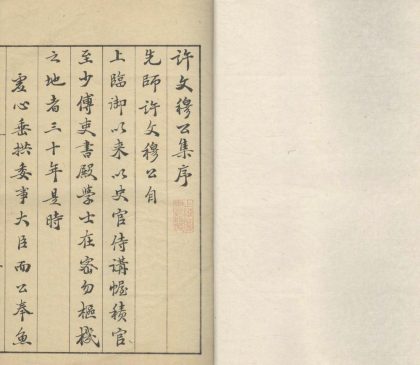 許文穆公集序
先師許文穆公自
上臨御以来以史官侍講幄積官
至少傅吏書殿學士在密勿樞機
之地者三十年是時
虛心垂拱委事大臣而公奉魚